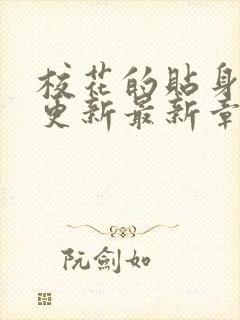 校花的貼身
更新最新章
阮劍如